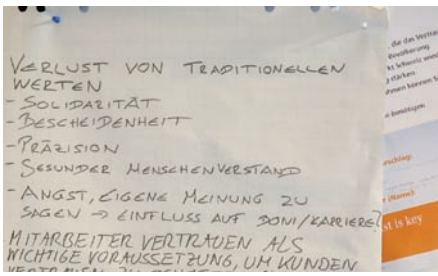 VERLUST VON TRADITIONELLEN
WERTEN
- SOLIDARITÄT
- BESCHEIDENHEIT
- PRÄZISION
- GESUNDER MENSCHENVERSTAND
- ANGST, EIGENE MEINUNG ZU
SAGEN → EINFLUSS AUF BONI/KARRIERE?
MITARBEITER VERTRAUEN ALS
WICHTIGE VORAUSSETZUNG, UM KUNDEN
, die das Vertrau
Bevölkerung
stärken
st is key